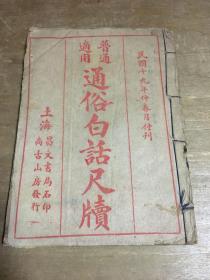 民國十九年仲春月付刊
普通適用
通俗白話尺牘
上海
昌文書局石印
尚古山房發行